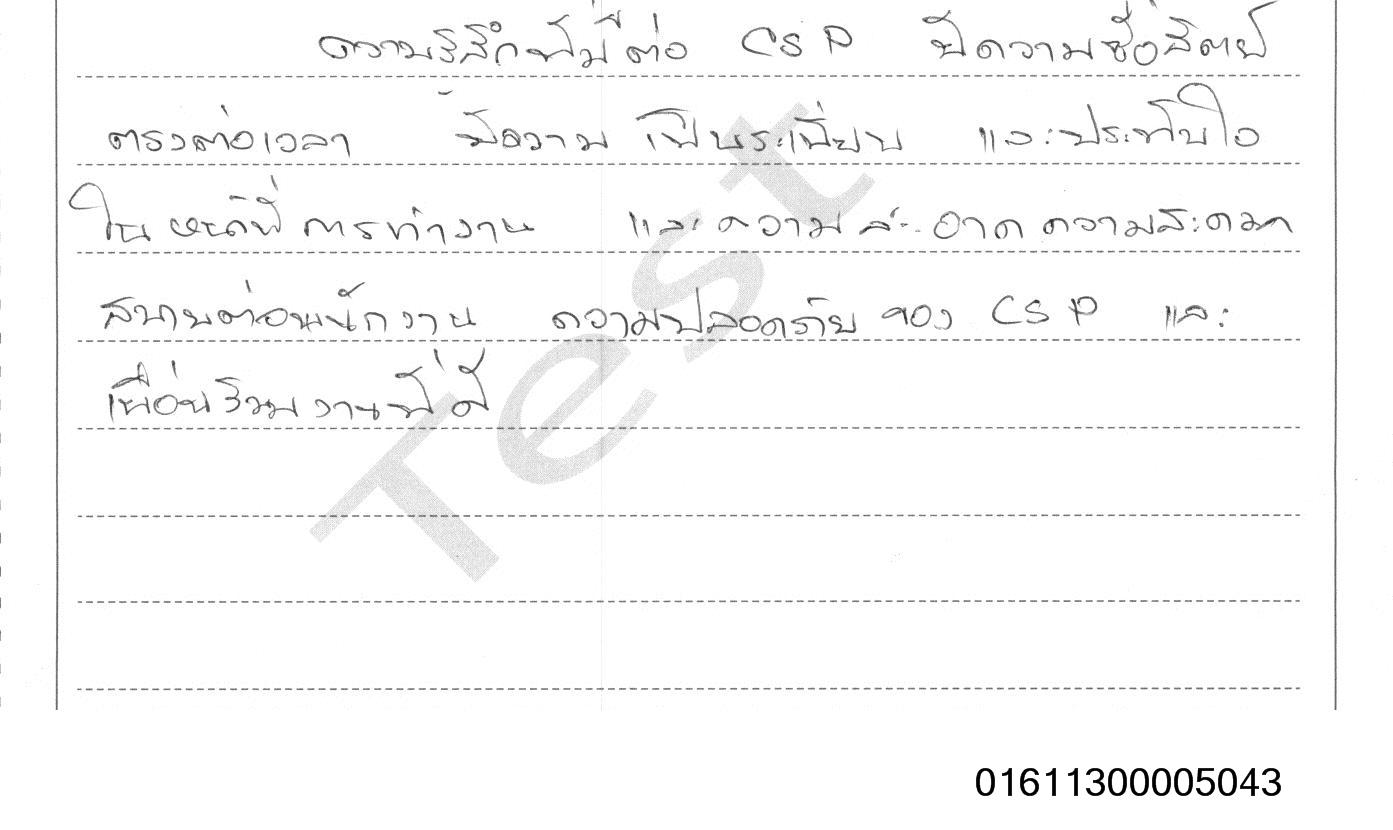 ความรู้สึกที่มีต่อ CSP มีความซื่อสัตย์
ตรงต่อเวลา มีความเป็นระเบียบ และประทับใจ
ในหน้าที่การทำงาน และความสะอาด ความสะดวก
สบายต่อพนักงาน ความปลอดภัยของ CSP และ
เพื่อนร่วมงานที่ดี
Test
01611300005043